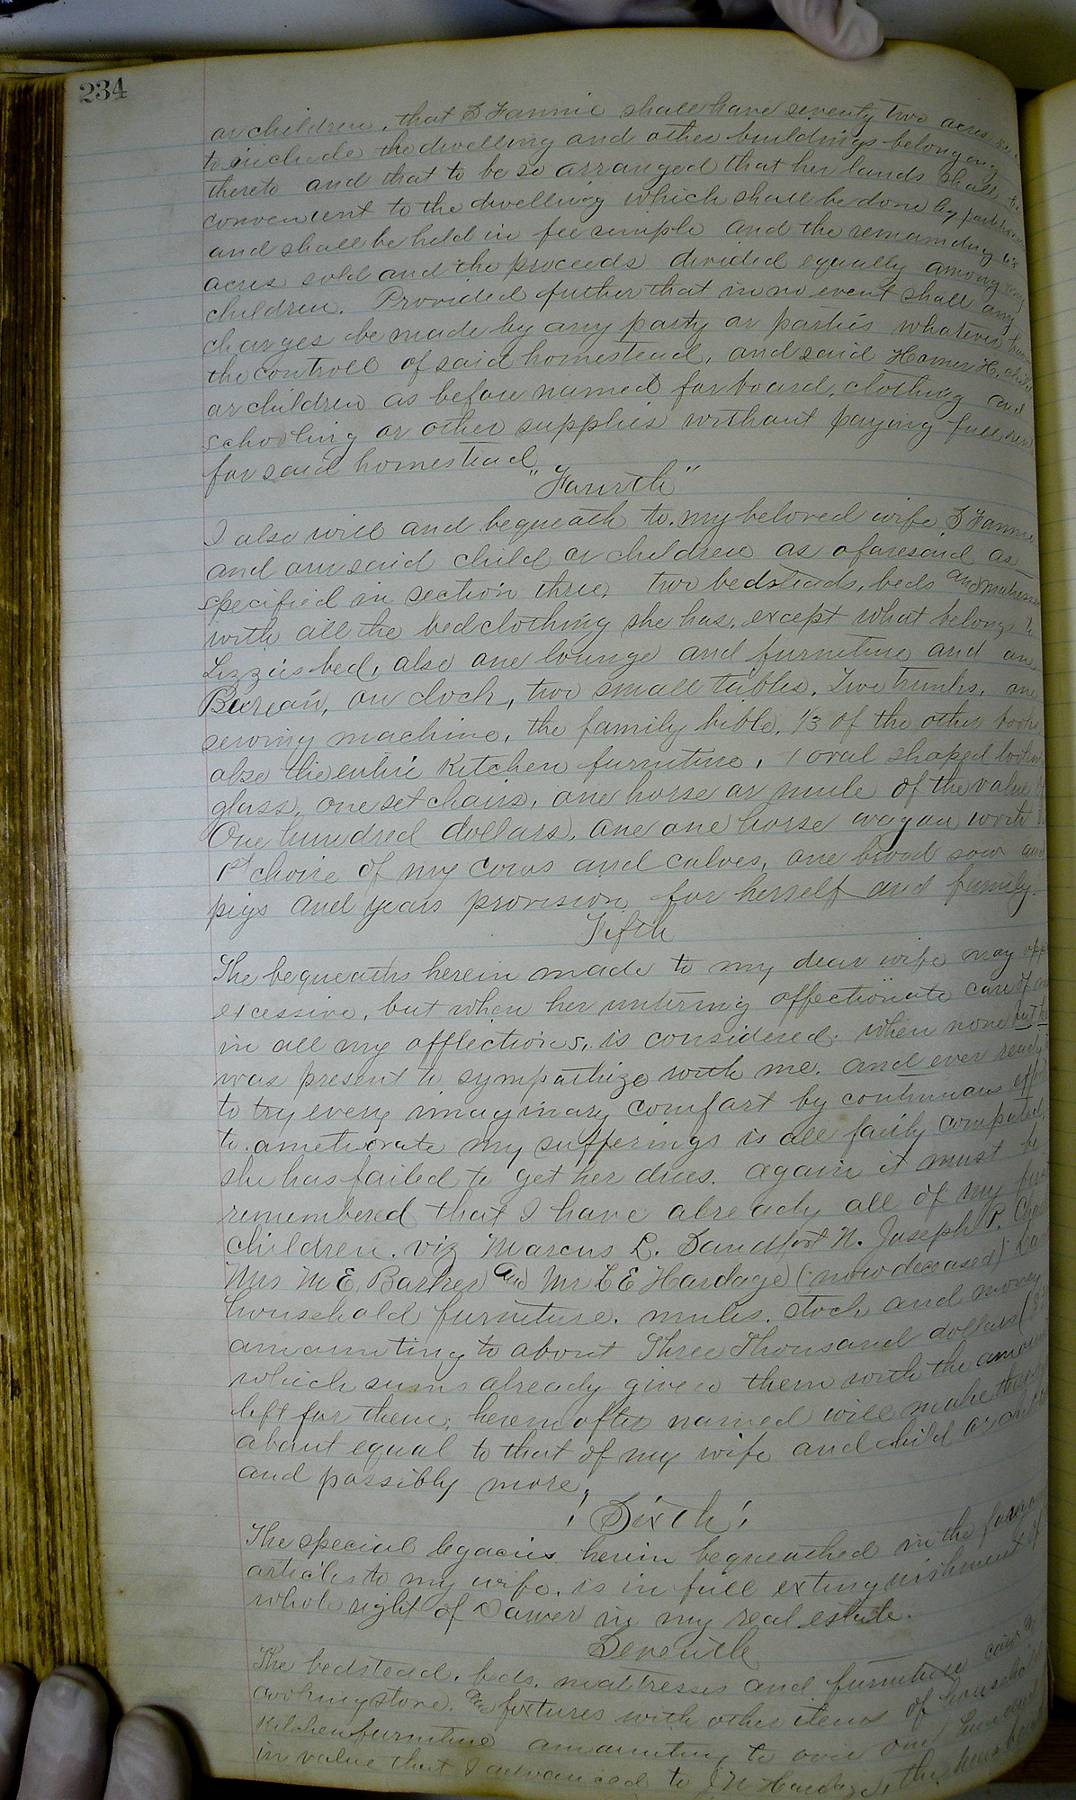 234
or children, that S Fannie shall have seventy two acres
to include the dwelling and other buildings belonging
thereto and that to be so arranged that her lands shall be
convenient to the dwelling which shall be done by
and shall be held in fee simple and the remainding
acres sold and the proceeds divided equally among my
children. Provided futher that in no event shall any
charges be made by any party or parties whatever
the controll of said homestead, and said Homer H.
or children as before named for board, clothing and
schooling or other supplies without paying full
for said homestead
"Fourth"
I also will and bequeath to my beloved wife S Fannie
and our said child or children as aforesaid as
specified in section three, two bedsteads, beds and
with all the bedclothing she has, except what belongs to
Lizzies bed, also one lounge and furniture and one
Bureau, on clock, two small tables, Two trunks, one
sewing machine, the family bible, 1/3 of the other books
also the entire Kitchen furniture, 1 oval shaped looking
glass, one set chairs, one horse or mule of the value of
One hundred dollars, one one horse wagon worth
1st choice of my cows and calves, one brood sow and
pigs and years provision for herself and family.
Fifth
The bequeaths herein made to my dear wife may
excessive, but when her untiring affectionate care of
in all my afflictions, is considered, when none but
was present to sympathize with me, and ever ready
to try every imaginary comfort by continuous
to ameliorate my sufferings is all fairly computed,
she has failed to get her dues. again it must be
remembered that I have already all of my
children, viz Marcus L. Sandfort N. Joseph P.
Mrs M E Barker and Mrs L E Hardage (now deceased)
household furniture, mules, stock and money
amounting to about Three Thousand dollars
which sums already given them with the amount
left for them, herein after named will make
about equal to that of my wife and child or
and possibly more,
"Sixth"
The special legacies herein bequeathed in the
articles to my wife, is in full extinguishment of
whole right of Dower in my real estate.
Seventh
The bedstead, beds, mattresses and furniture
cooking stove, and fixtures with other items of household
Kitchen furniture amounting to over one
in value that I advanced to J N Hardage,